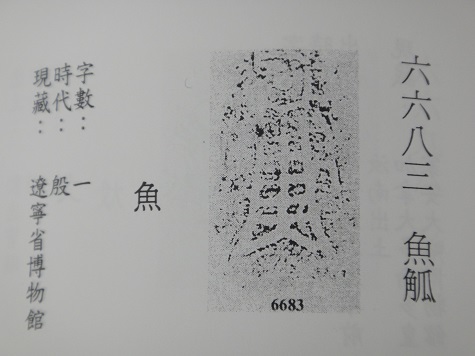 六六八三 魚觚
6683
魚
字數：一
時代：殷
現藏：遼寧省博物館